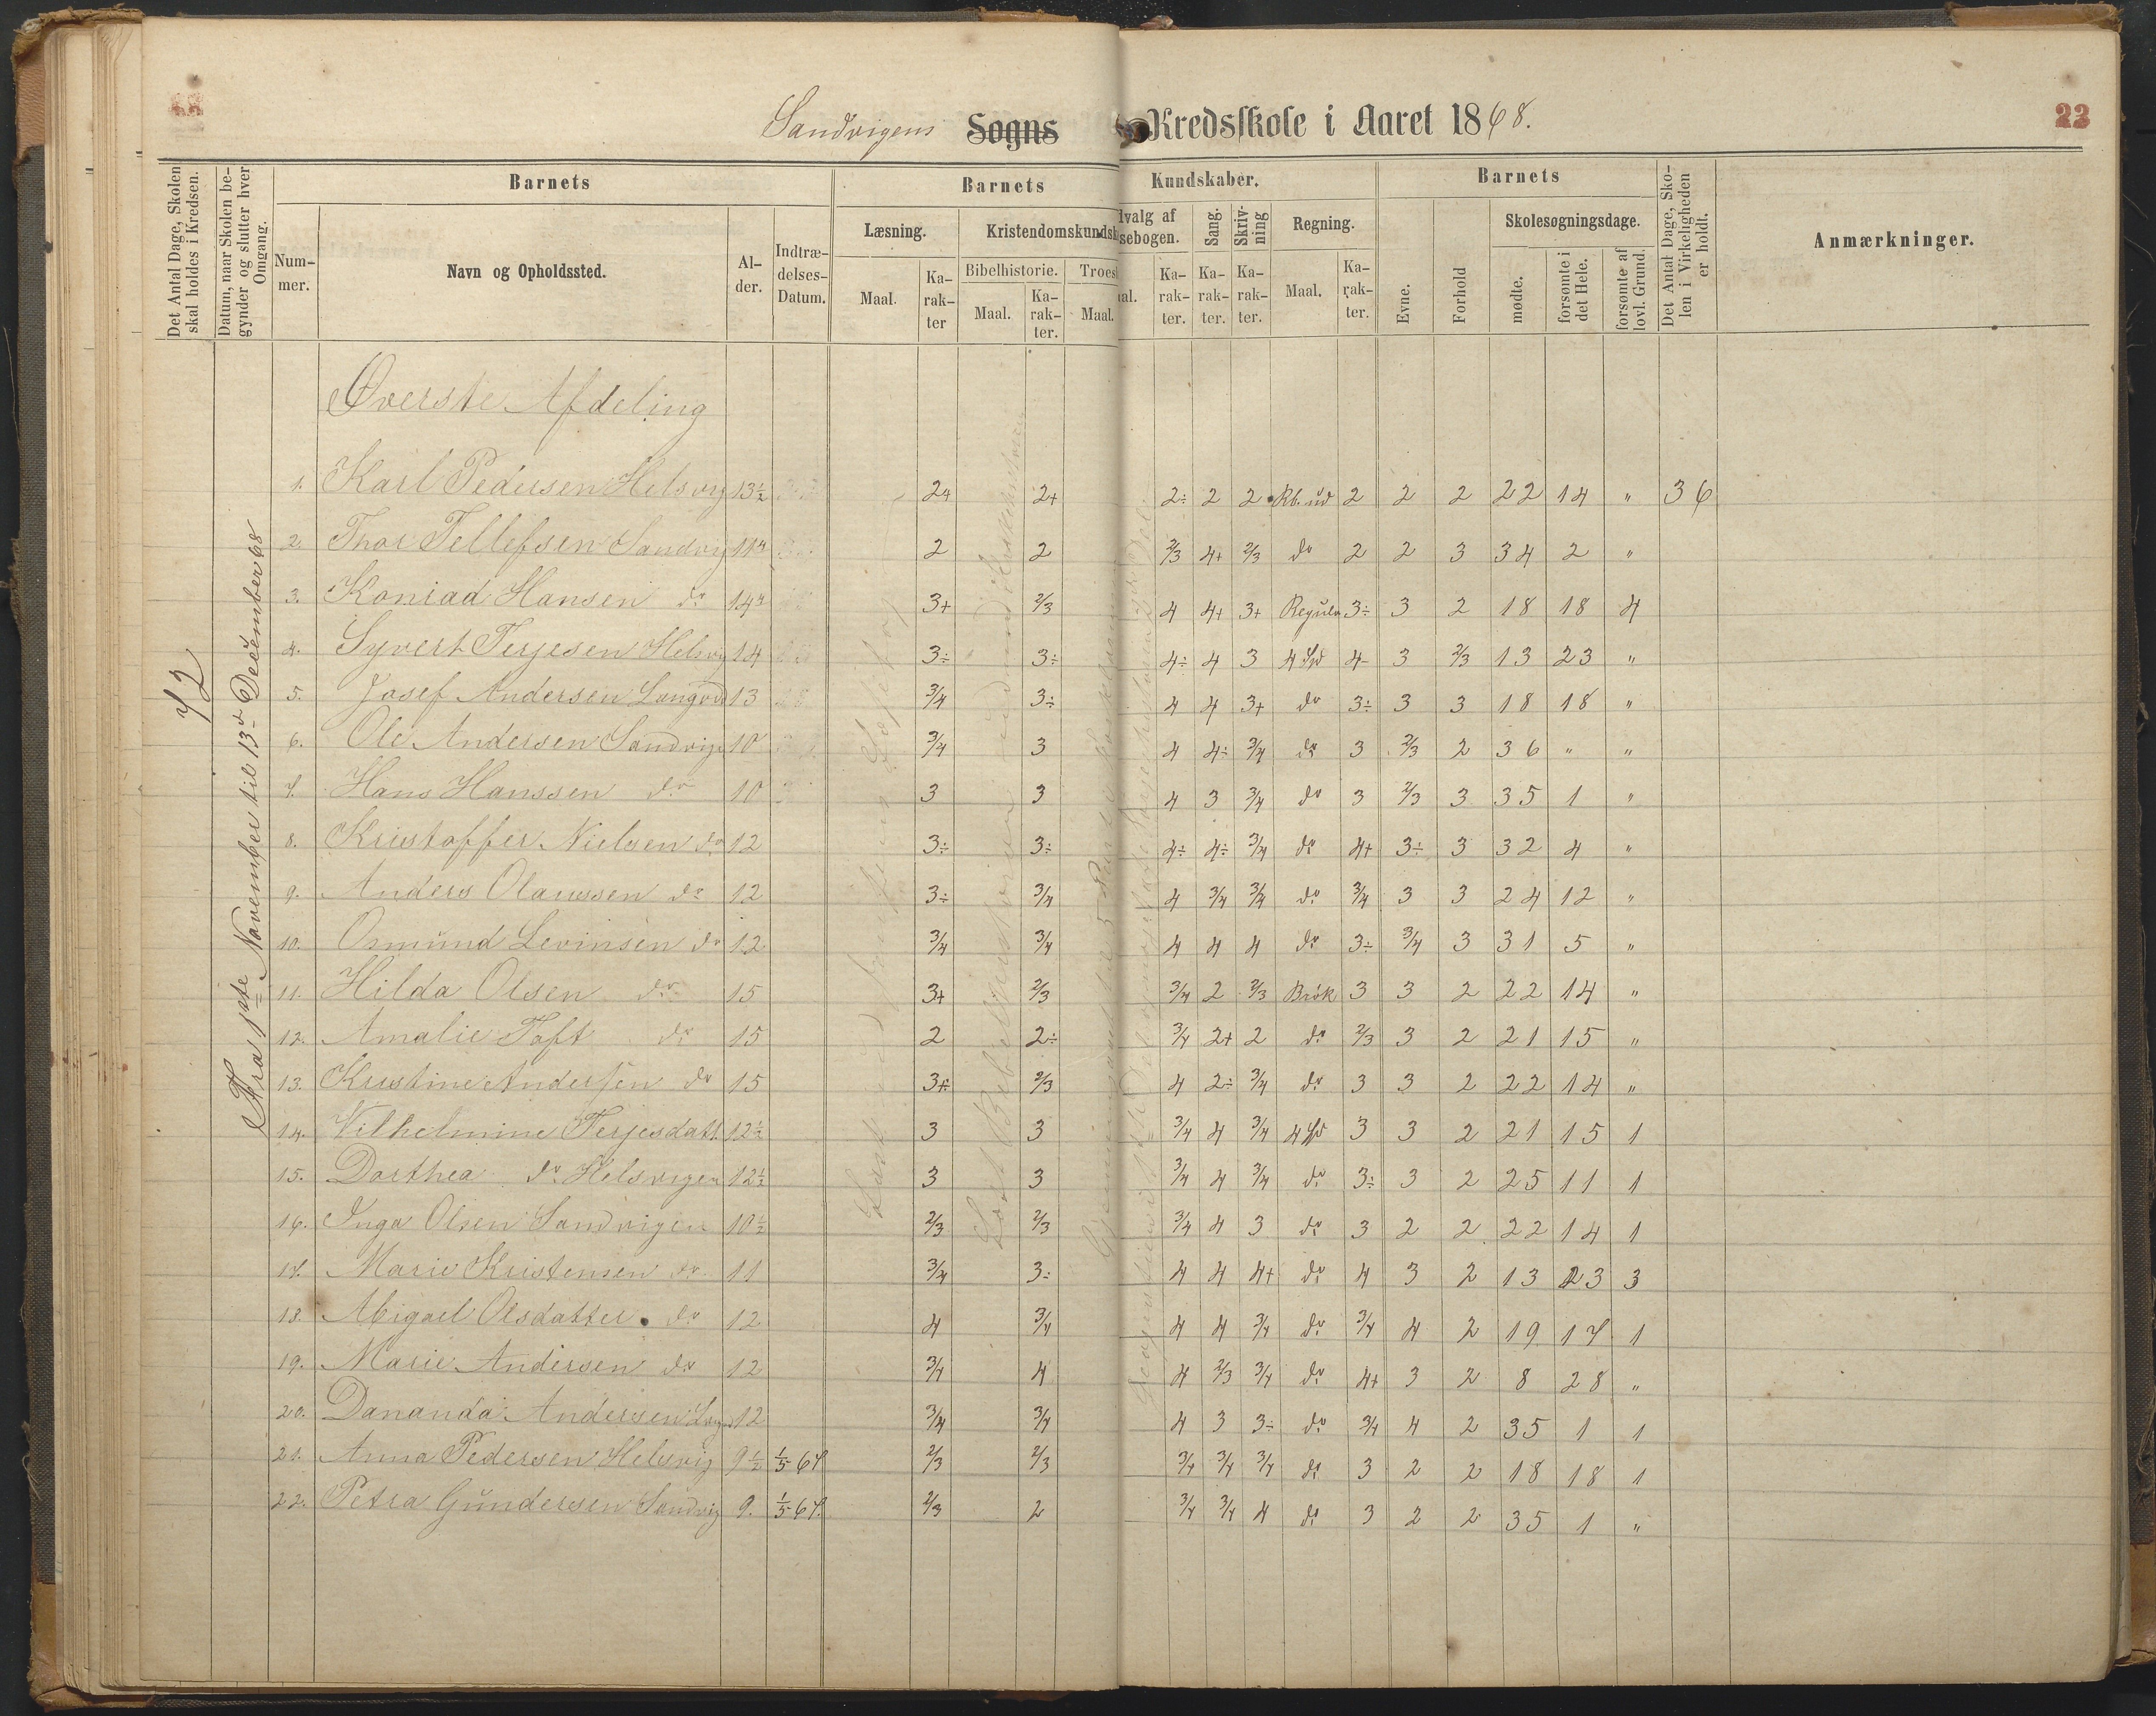 Sandvigens Sogns Kredsskole i Aaret 1868.
22
Det Antal Dage, Skolen skal holdes i Kredsen.
Datum, naar Skolen begynder og slutter hver Omgang.
Barnets
Num-mer.
Navn og Opholdssted.
Al-der.
Indtræ-delses-Datum.
Barnets Kundskaber.
Læsning.
Maal.
Ka-rak-ter
Kristendomskundsk
Bibelhistorie.
Maal.
Ka-rak-ter.
Troes
Maal.
dvalg af
sebogen.
al.
Ka-rak-ter.
Sang.
Ka-rak-ter.
Skriv-ning
Ka-rak-ter.
Regning.
Maal.
Ka-rak-ter.
Barnets
Evne.
Forhold
Skolesøgningsdage.
mødte.
forsømte i det Hele.
forsømte af lovl. Grund.
Det Antal Dage, Sko-len i Virkeligheden er holdt.
Anmærkninger.
72
Fra 1ste November til 13de December 68
Øverste Afdeling
1. Karl Pedersen Helsvig 13½ 2+ 2+ 2÷ 2 2 Rb. ud 2 2 2 22 14 " 36
2. Thor Tellefsen Sandvig 2 2 2/3 4+ 2/3 do 2 2 3 34 2 "
3. Konrad Hansen do 3+ 2/3 4 4+ 3+ Regula 3÷ 3 2 18 18 4
4. Syvert Terjesen Helsvig 14 3÷ 3÷ 4÷ 4 3 4 4- 3 2/3 13 23 "
5. Josef Andersen 13 3/4 3÷ 4 4 3+ do 3÷ 3 3 18 18 "
6. Ole Andersen Sandvig 10 3/4 3 4 4÷ 3/4 do 3 2/3 2 36 " "
7. Hans Hanssen do 10 3 3 4 3 3/4 do 3 2/3 3 35 1 "
8. Kristoffer Nielsen do 12 3÷ 3÷ 4÷ 4÷ 3/4 do 4+ 3÷ 3 32 4 "
9. Anders Olaussen do 12 3÷ 3/4 4 3/4 3/4 do 3/4 3 3 24 12 "
10. Osmund Levinsen do 12 3/4 3/4 4 4 4 do 3÷ 3/4 3 31 5 "
11. Hilda Olsen do 15 3+ 2/3 3/4 2 2/3 Brök 3 3 2 22 14 "
12. Amalie Toft do 15 2 2÷ 3/4 2+ 2 do 2/3 3 2 21 15 "
13. Kristine Andersen do 15 3+ 2/3 4 2÷ 3/4 do 3 3 2 22 14 "
14. Vilhelmine Terjesdatt. 12½ 3 3 3/4 4 3/4 4 3 3 2 21 15 1
15. Dorthea do Helsvigen 12½ 3 3 3/4 4 3/4 do 3÷ 3 2 25 11 1
16. Inga Olsen Sandvigen 10½ 2/3 2/3 3/4 4 3 do 3 2 2 22 14 1
17. Marie Kristensen do 11 3/4 3÷ 4 4 4+ do 4 3 2 13 23 3
18. Abigael Olsdatter do 12 4 3/4 4 4 3/4 do 3/4 4 2 19 17 1
19. Marie Andersen do 12 3/4 4 4 2/3 3/4 do 4+ 3 2 8 28 "
20. Dananda Andersen 12 3/4 3/4 4 3 3÷ do 3/4 4 2 35 1 1
21. Anna Pedersen Helsvig 9½ 1/5 67 2/3 2/3 3/4 3/4 3/4 do 3 2 2 18 18 1
22. Petra Gundersen Sandvig 9. 1/5 67. 2/3 2 3/4 3/4 4 do 3 2 2 35 1 "